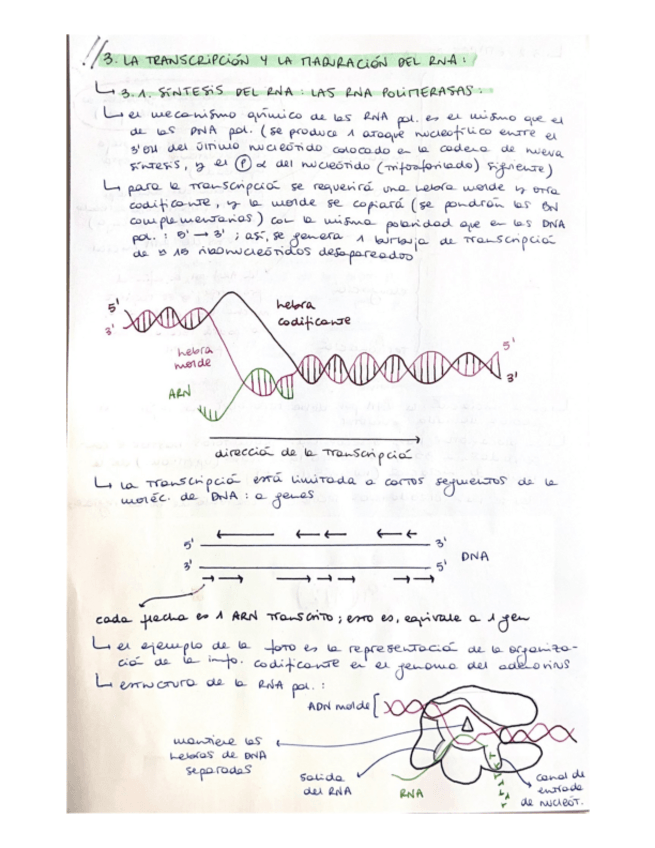 3. LA TRANSCRIPCIÓN Y LA MADURACIÓN DEL RNA:
↳ 3.1. SÍNTESIS DEL RNA: LAS RNA POLIMERASAS:
↳ el mecanismo químico de las RNA pol. es el mismo que el
de las DNA pol. (se produce 1 ataque nucleofílico entre el
3'OH del último nucleótido colocado en la cadena de nueva
síntesis, y el Ⓟ α del nucleótido (trifosforilado) siguiente)
↳ para la transcripción se requerirá una hebra molde y otra
codificante, y la molde se copiará (se pondrán las BN
complementarias) con la misma polaridad que en las DNA
pol.: 5' → 3'; así, se genera 1 burbuja de transcripción
de 15 ribonucleótidos desapareados
5'
3'
hebra
codificante
hebra
molde
ARN
5'
3'
dirección de la transcripción
↳ la transcripción está limitada a cortos segmentos de la
moléc. de DNA: a genes
5' 3'
DNA
3' 5'
cada flecha es 1 ARN transcrito; esto es, equivale a 1 gen
↳ el ejemplo de la foto es la representación de la organiza-
ción de la info. codificante en el genoma del adenovirus
↳ estructura de la RNA pol.:
ADN molde
mantiene las
hebras de DNA
separadas
salida
del RNA
RNA
canal de
entrada
de nucleót.